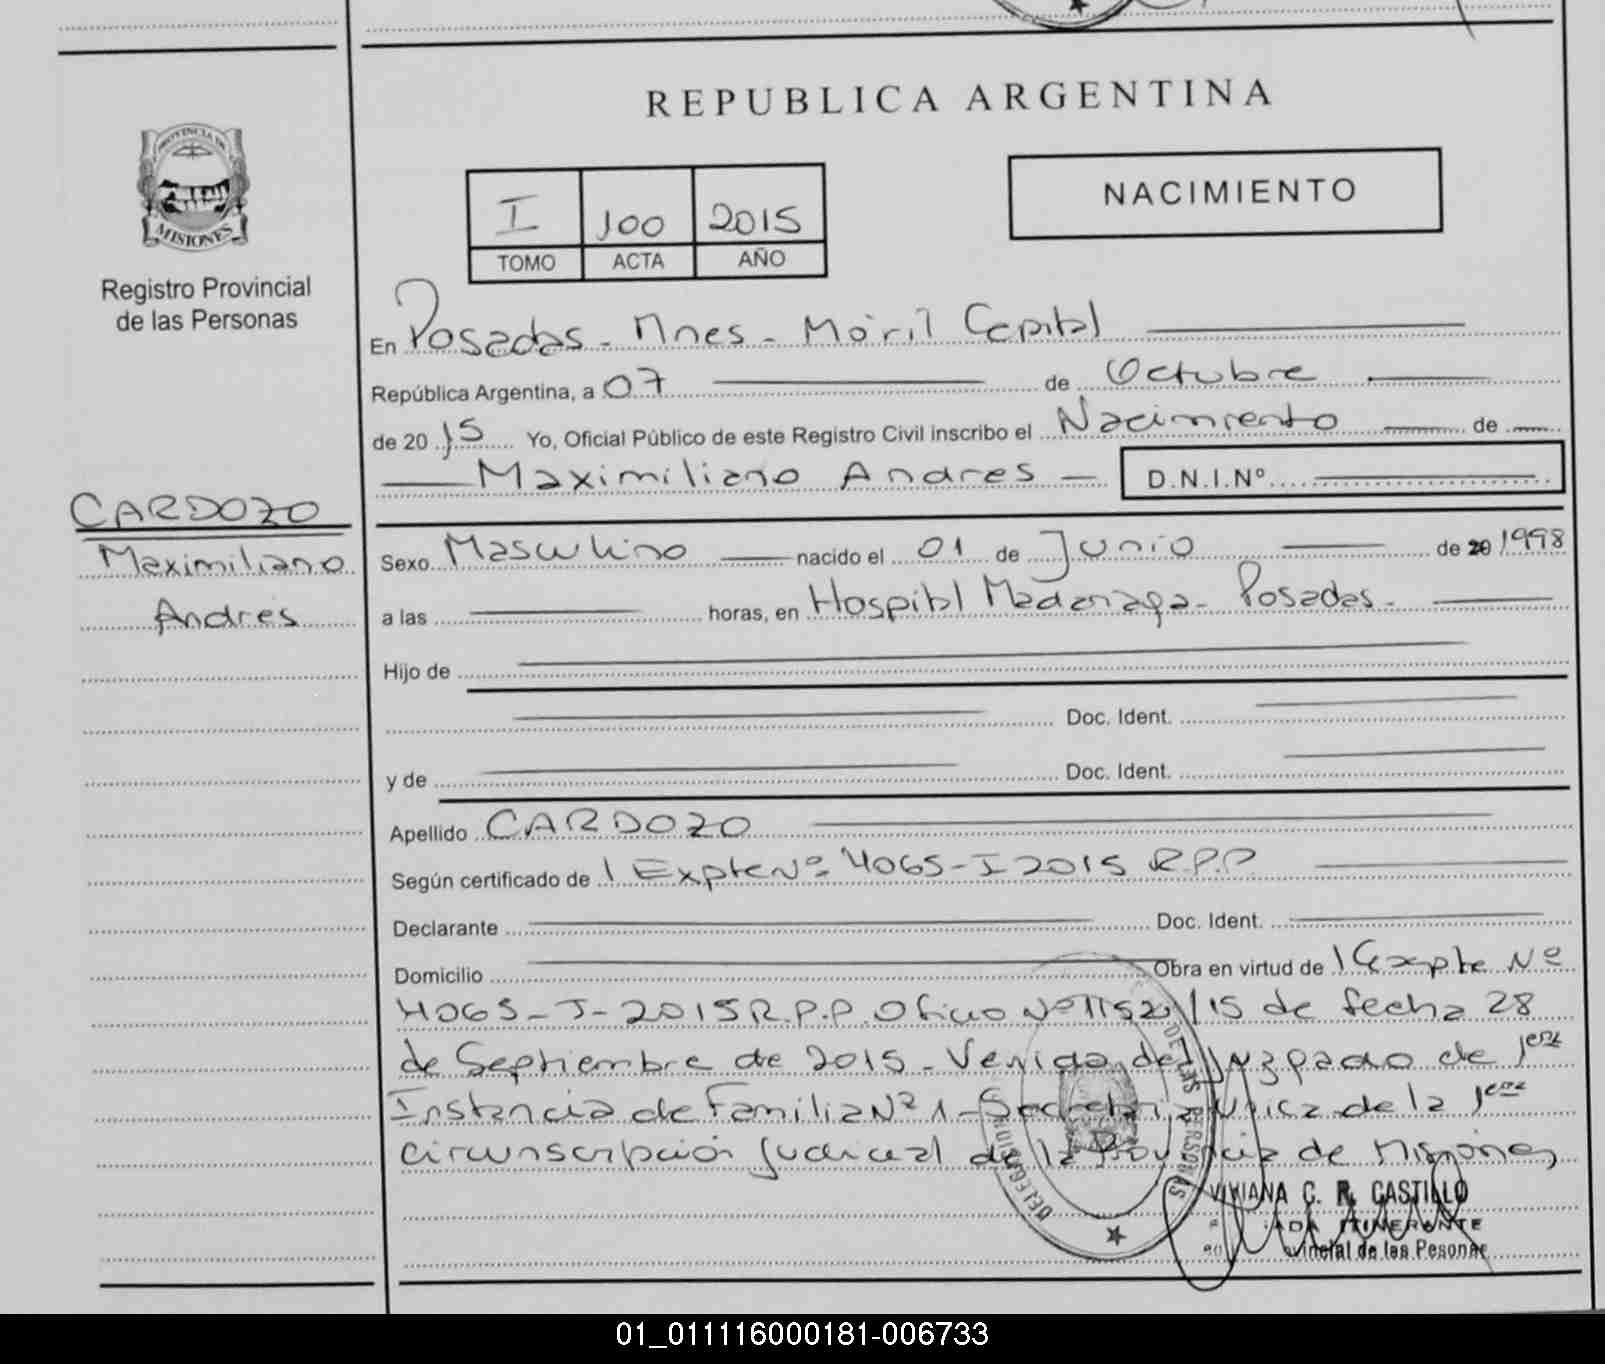 REPUBLICA ARGENTINA
PROVINCIA DE
MISIONES
Registro Provincial
de las Personas
I 100 2015
TOMO ACTA AÑO
NACIMIENTO
En Posadas - Mnes - Móvil Capital
República Argentina, a 07 de Octubre
de 2015 Yo, Oficial Público de este Registro Civil inscribo el Nacimiento de
Maximiliano Andres D.N.I.Nº
CARDOZO
Maximiliano
Andres
Sexo Masculino nacido el 01 de Junio de 20 1998
a las horas, en Hospital Madariaga - Posadas -
Hijo de
Doc. Ident.
y de Doc. Ident.
Apellido CARDOZO
Según certificado de Expte Nº 4065-I-2015 R.P.P
Declarante Doc. Ident.
Domicilio Obra en virtud de Expte Nº
4065-I-2015 R.P.P. Oficio Nº 1152 /15 de fecha 28
de Septiembre de 2015 - Venida del Juzgado de 1era
Instancia de Familia Nº 1 - Secretaria Unica de la 1era
circunscripción Judicial de la Provincia de Misiones
DELEGACION DE LAS PERSONAS
VIVIANA C. R. CASTILLO
ITINERANTE
de las Pesonas
01_011116000181-006733